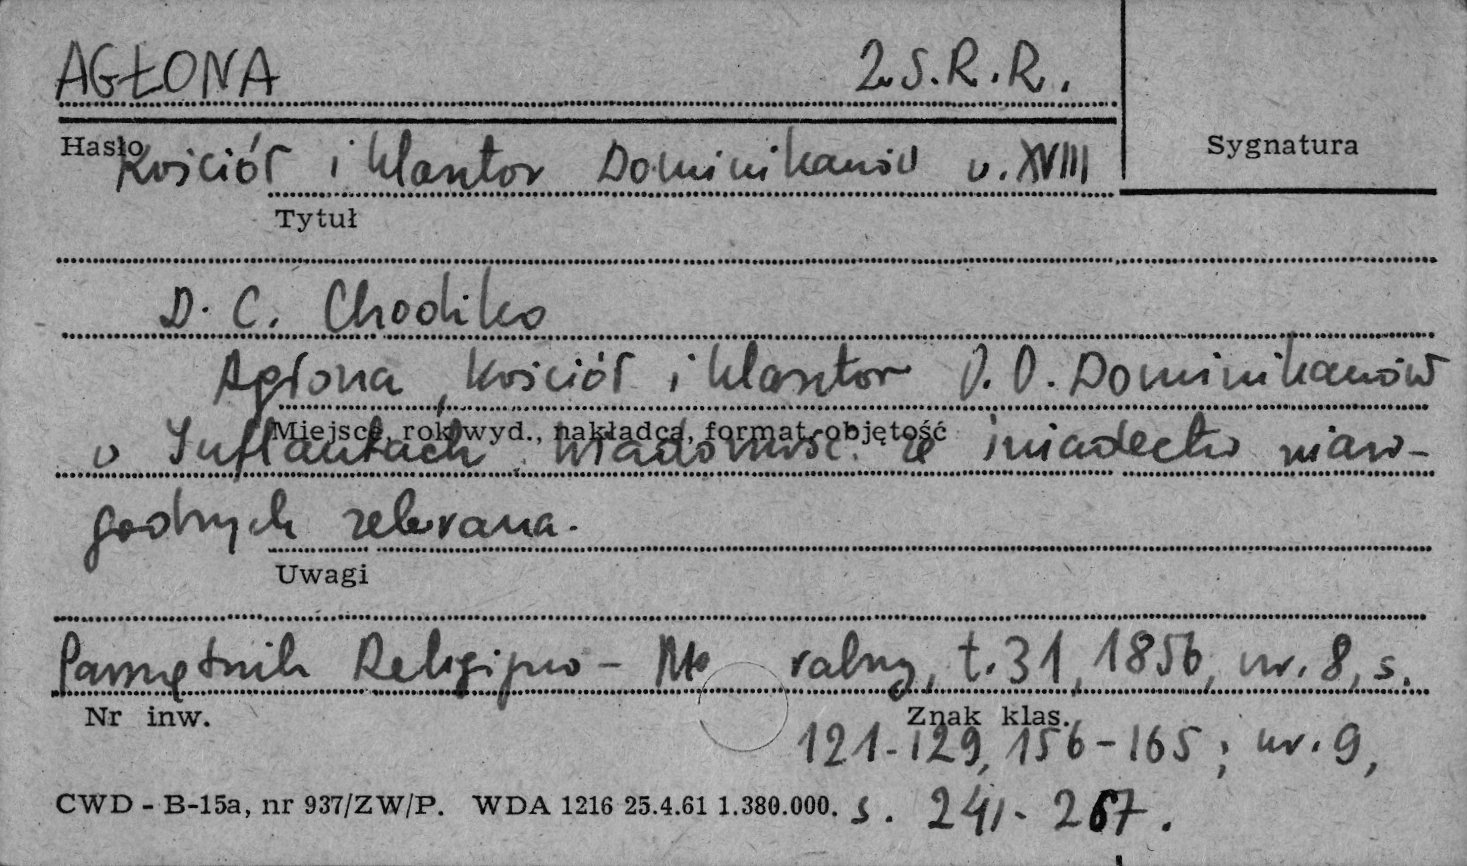 AGŁONA Z.S.R.R.
Hasło
Sygnatura
Kościół i klasztor Dominikanów w. XVIII
Tytuł
D. C. Chodźko
Agłona, kościół i klasztor O.O. Dominikanów
Miejsce, rok wyd., nakładca, format, objętość
w Inflantach. Wiadomość ze świadectw wiaro-
godnych zebrana.
Uwagi
Pamiętnik Religijno - Mo ralny, t. 31, 1856, nr. 8, s.
Nr inw. Znak klas.
121-129, 156-165; nr. 9,
CWD - B-15a, nr 937/ZW/P. WDA 1216 25.4.61 1.380.000.
s. 241-267.